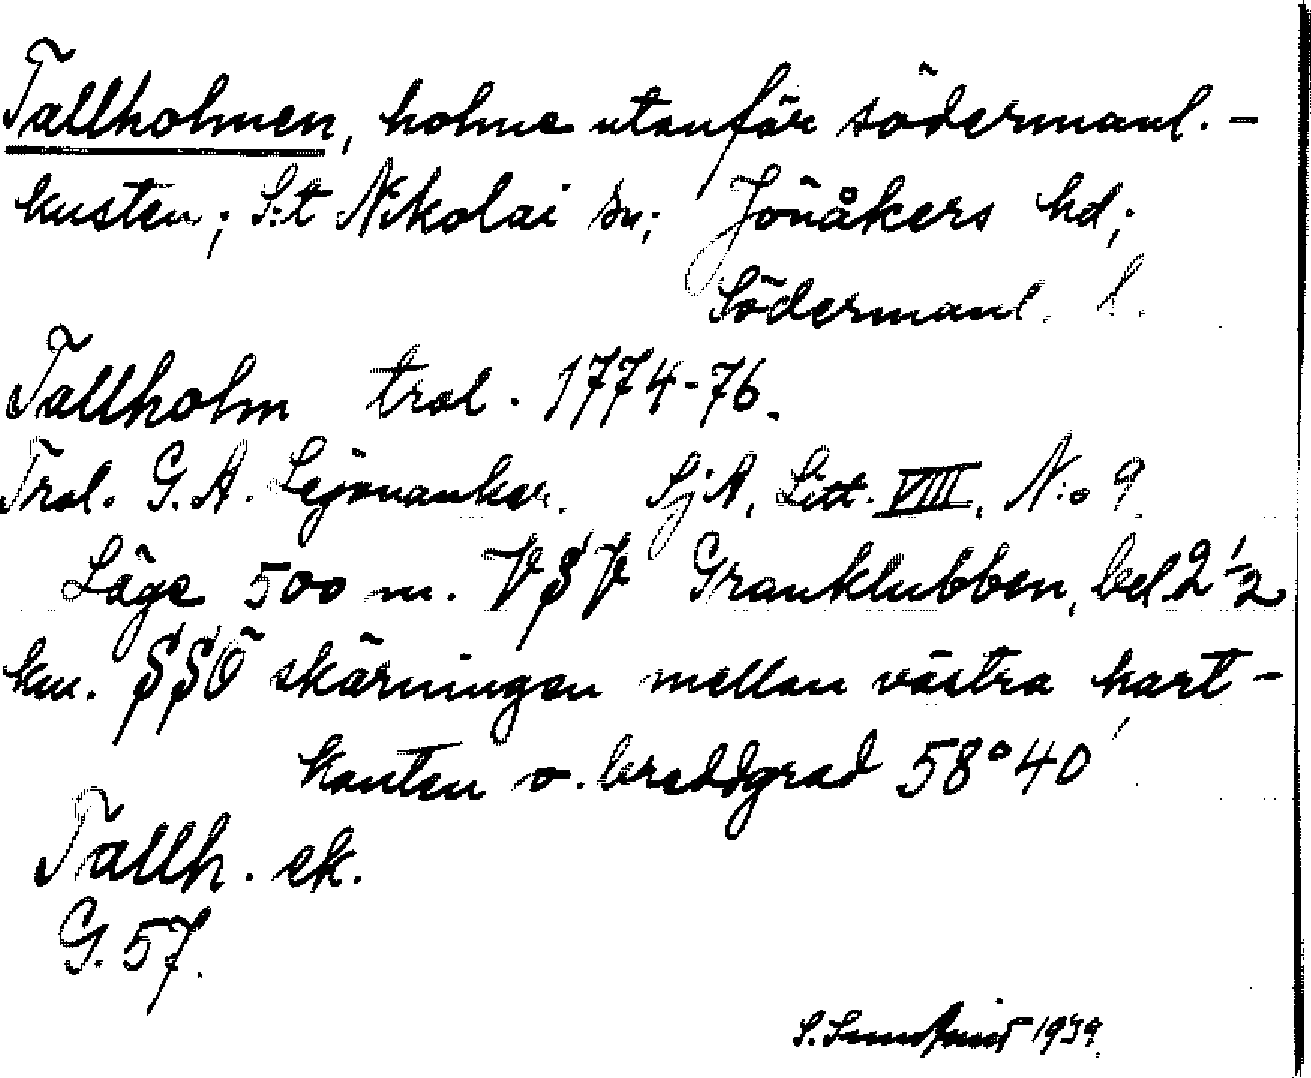 Tallholmen, holme utanför södermanl.-
kusten; S:t Nikolai sn; Jönåkers hd;
Södermanl. l.
Tallholm trol. 1774-76.
Trol. G. A. Lejonanker. SjA, Litt. VIII, N:o 9
Läge 500 m. VSV Granklubben, bel 2 1/2
km. SSÖ skärningen mellan västra kart-
kanten o. breddgrad 58°40'
Tallh. ek.
G. 57.
S. 1939.